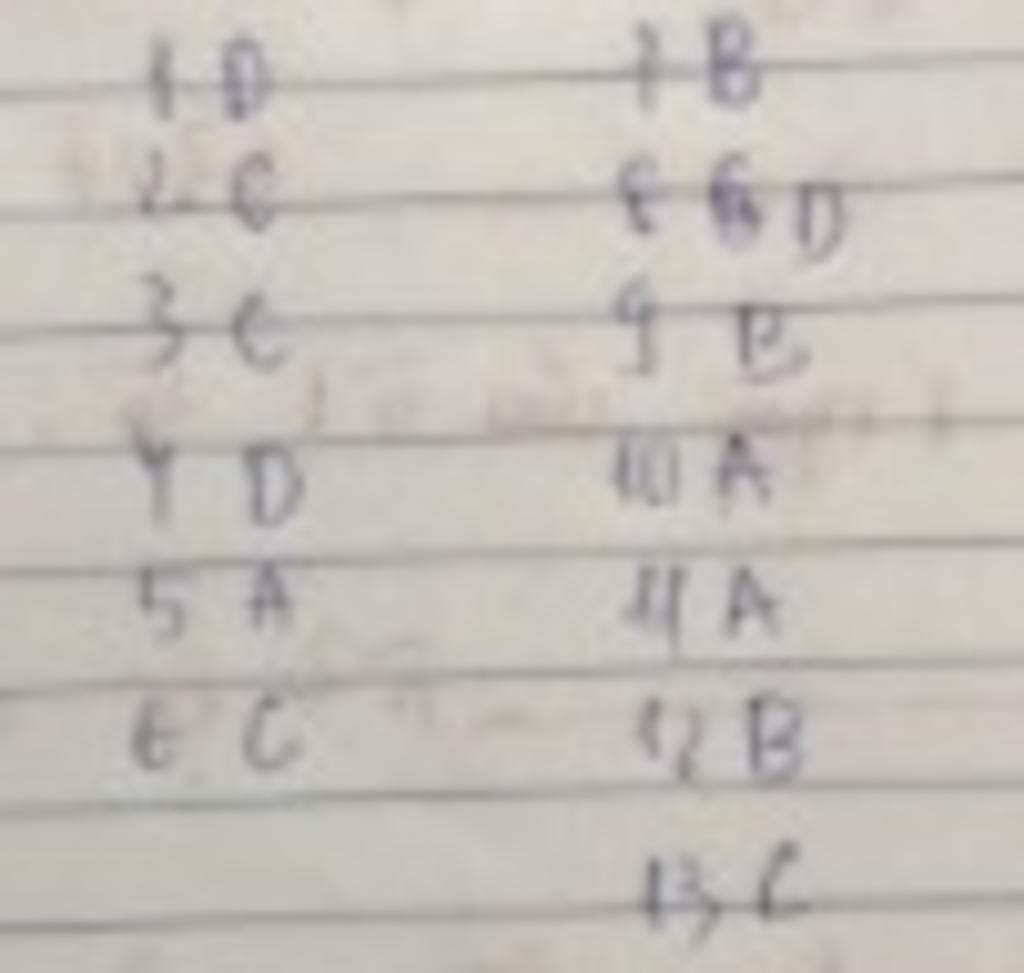 1 D
2 C
3 C
4 D
5 A
6 C
7 B
8 D
9 B
10 A
11 A
12 B
13 C